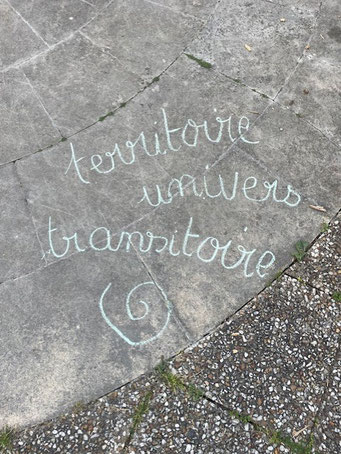 territoire
univers
transitoire